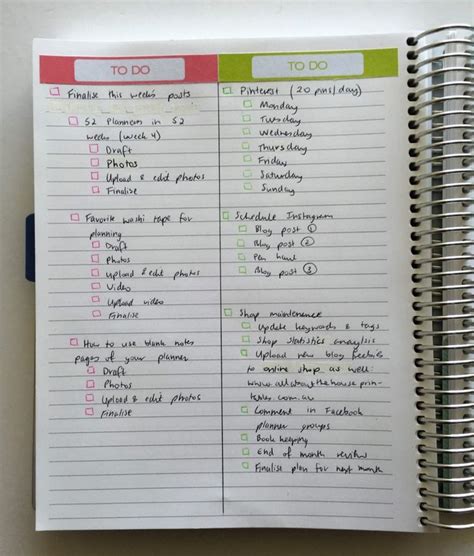 TO DO
Finalise this weeks posts
52 Planners in 52
weeks (week 4)
Draft
Photos
Upload & edit photos
Finalise
Favorite washi tape for
planning
Draft
Photos
Upload & edit photos
Video
Upload video
Finalise
How to use blank notes
pages of your planner
Draft
Photos
Upload & edit photos
Finalise
TO DO
Pinterest (20 pins/day)
Monday
Tuesday
Wednesday
Thursday
Friday
Saturday
Sunday
Schedule Instagram
Blog post 1
Blog post 2
Pen haul
Blog post 3
Shop maintenence
Update keywords & tags
Shop statistics analysis
Upload new blog freebies
to online shop as well:
www.allaboutthehouseprin-
tables.com.au
Comment in Facebook
planner groups
Book keeping
End of month review
Finalise plan for next month